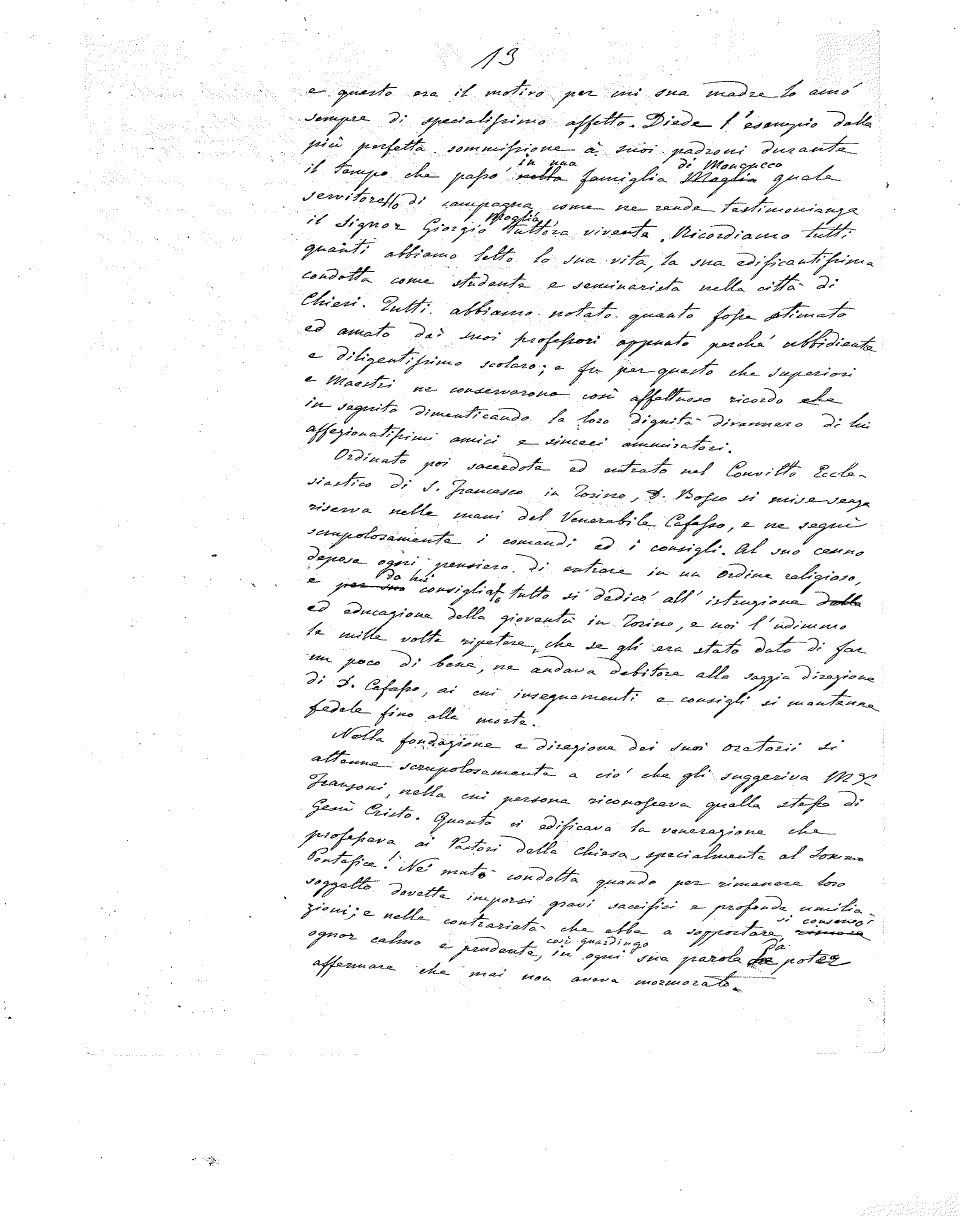 13
e questo era il motivo per cui sua madre lo amò
sempre di specialissimo affetto. Diede l'esempio della
più perfetta sommissione a' suoi padroni durante
in una di Moncucco
il tempo che passò nella famiglia Moglia quale
servitorello di campagna come ne rende testimonianza
Moglia
il Signor Giorgio tuttora vivente. Ricordiamo tutti
quanti abbiamo letto la sua vita, la sua edificantissima
condotta come studente e seminarista nella città di
Chieri. Tutti abbiamo notato quanto fosse stimato
ed amato dai suoi professori appunto perchè ubbidiente
e diligentissimo scolaro; e fu per questo che superiori
e Maestri ne conservarono così affettuoso ricordo che
in seguito dimenticando la loro dignità divennero di lui
affezionatissimi amici e sinceri ammiratori.
Ordinato poi sacerdote ed entrato nel Convitto Eccle-
siastico di S. Francesco in Torino, D. Bosco si mise senza
riserva nelle mani del Venerabile Cafasso, e ne seguì
scrupolosamente i comandi ed i consigli. Al suo cenno
depose ogni pensiero di entrare in un ordine religioso,
da lui
e per suo consigliato tutto si dedicò all'istruzione della
ed educazione della gioventù in Torino, e noi l'udimmo
le mille volte ripetere, che se gli era stato dato di far
un poco di bene, ne andava debitore alla saggia direzione
di D. Cafasso, ai cui insegnamenti e consigli si mantenne
fedele fino alla morte.
Nella fondazione e direzione dei suoi oratorii si
attenne scrupolosamente a ciò che gli suggeriva Mgr
Fransoni, nella cui persona riconosceva quella stessa di
Gesù Cristo. Quanto ci edificava la venerazione che
professava ai Pastori della Chiesa, specialmente al Sommo
Pontefice! Nè mutò condotta quando per rimanere loro
soggetto dovette imporsi gravi sacrifici e profonde umilia-
si conservò
zioni; e nelle contrarietà che ebbe a sopportare rimase
così guardingo da
ognor calmo e prudente, in ogni sua parola poter
affermare che mai non aveva mormorato.